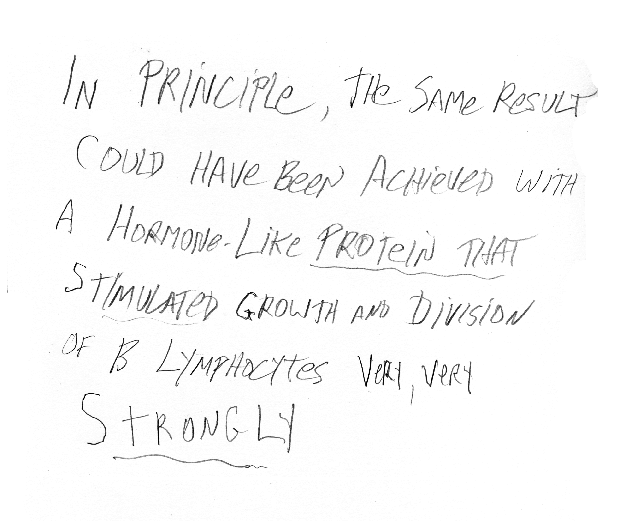 In Principle, the same result
could have been achieved with
a hormone-like protein that
stimulated growth and division
of B lymphocytes very, very
strongly